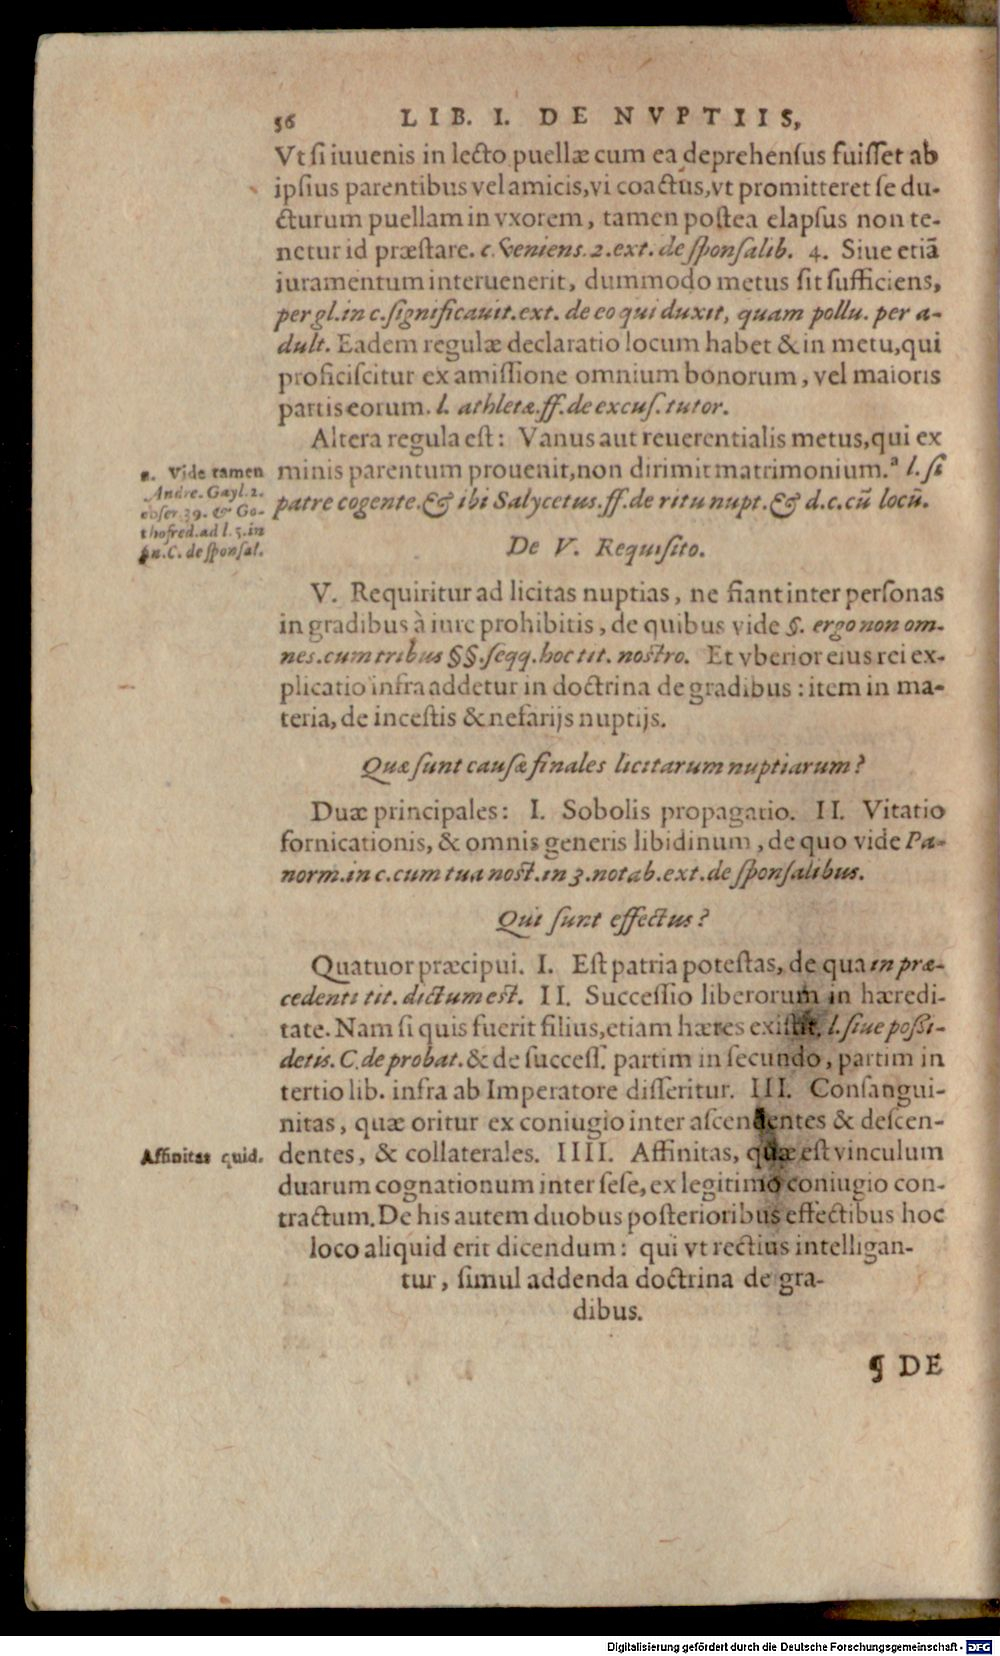 56 LIB. I. DE NVPTIIS,
Vt si iuuenis in lecto puellæ cum ea deprehensus fuisset ab
ipsius parentibus vel amicis, vi coactus, vt promitteret se du-
cturum puellam in vxorem, tamen postea elapsus non te-
netur id præstare. c. Veniens. 2. ext. de sponsalib. 4. Siue etiā
iuramentum interuenerit, dummodo metus sit sufficiens,
per gl. in c. significauit. ext. de eo qui duxit, quam pollu. per a-
dult. Eadem regulæ declaratio locum habet & in metu, qui
proficiscitur ex amissione omnium bonorum, vel maioris
partis eorum. l. athletæ. ff. de excus. tutor.
Altera regula est: Vanus aut reuerentialis metus, qui ex
minis parentum prouenit, non dirimit matrimonium.ᵃ l. si
patre cogente. & ibi Salycetus. ff. de ritu nupt. & d. c. cū locū.
a. Vide tamen
Andre. Gayl. 2.
obser. 39. & Go-
thofred. ad l. 5. in
fin. C. de sponsal.
De V. Requisito.
V. Requiritur ad licitas nuptias, ne fiant inter personas
in gradibus à iure prohibitis, de quibus vide §. ergo non om-
nes. cum tribus §§. seqq. hoc tit. nostro. Et vberior eius rei ex-
plicatio infra addetur in doctrina de gradibus: item in ma-
teria, de incestis & nefarijs nuptijs.
Quæ sunt causæ finales licitarum nuptiarum?
Duæ principales: I. Sobolis propagatio. II. Vitatio
fornicationis, & omnis generis libidinum, de quo vide Pa-
norm. in c. cum tua nost. in 3. notab. ext. de sponsalibus.
Qui sunt effectus?
Quatuor præcipui. I. Est patria potestas, de qua in præ-
cedenti tit. dictum est. II. Successio liberorum in hæredi-
tate. Nam si quis fuerit filius, etiam hæres existit. l. siue possi-
detis. C. de probat. & de success. partim in secundo, partim in
tertio lib. infra ab Imperatore disseritur. III. Consangui-
nitas, quæ oritur ex coniugio inter ascendentes & descen-
dentes, & collaterales. IIII. Affinitas, quæ est vinculum
Affinitas quid.
duarum cognationum inter sese, ex legitimo coniugio con-
tractum. De his autem duobus posterioribus effectibus hoc
loco aliquid erit dicendum: qui vt rectius intelligan-
tur, simul addenda doctrina de gra-
dibus.
¶ DE
Digitalisierung gefördert durch die Deutsche Forschungsgemeinschaft - DFG